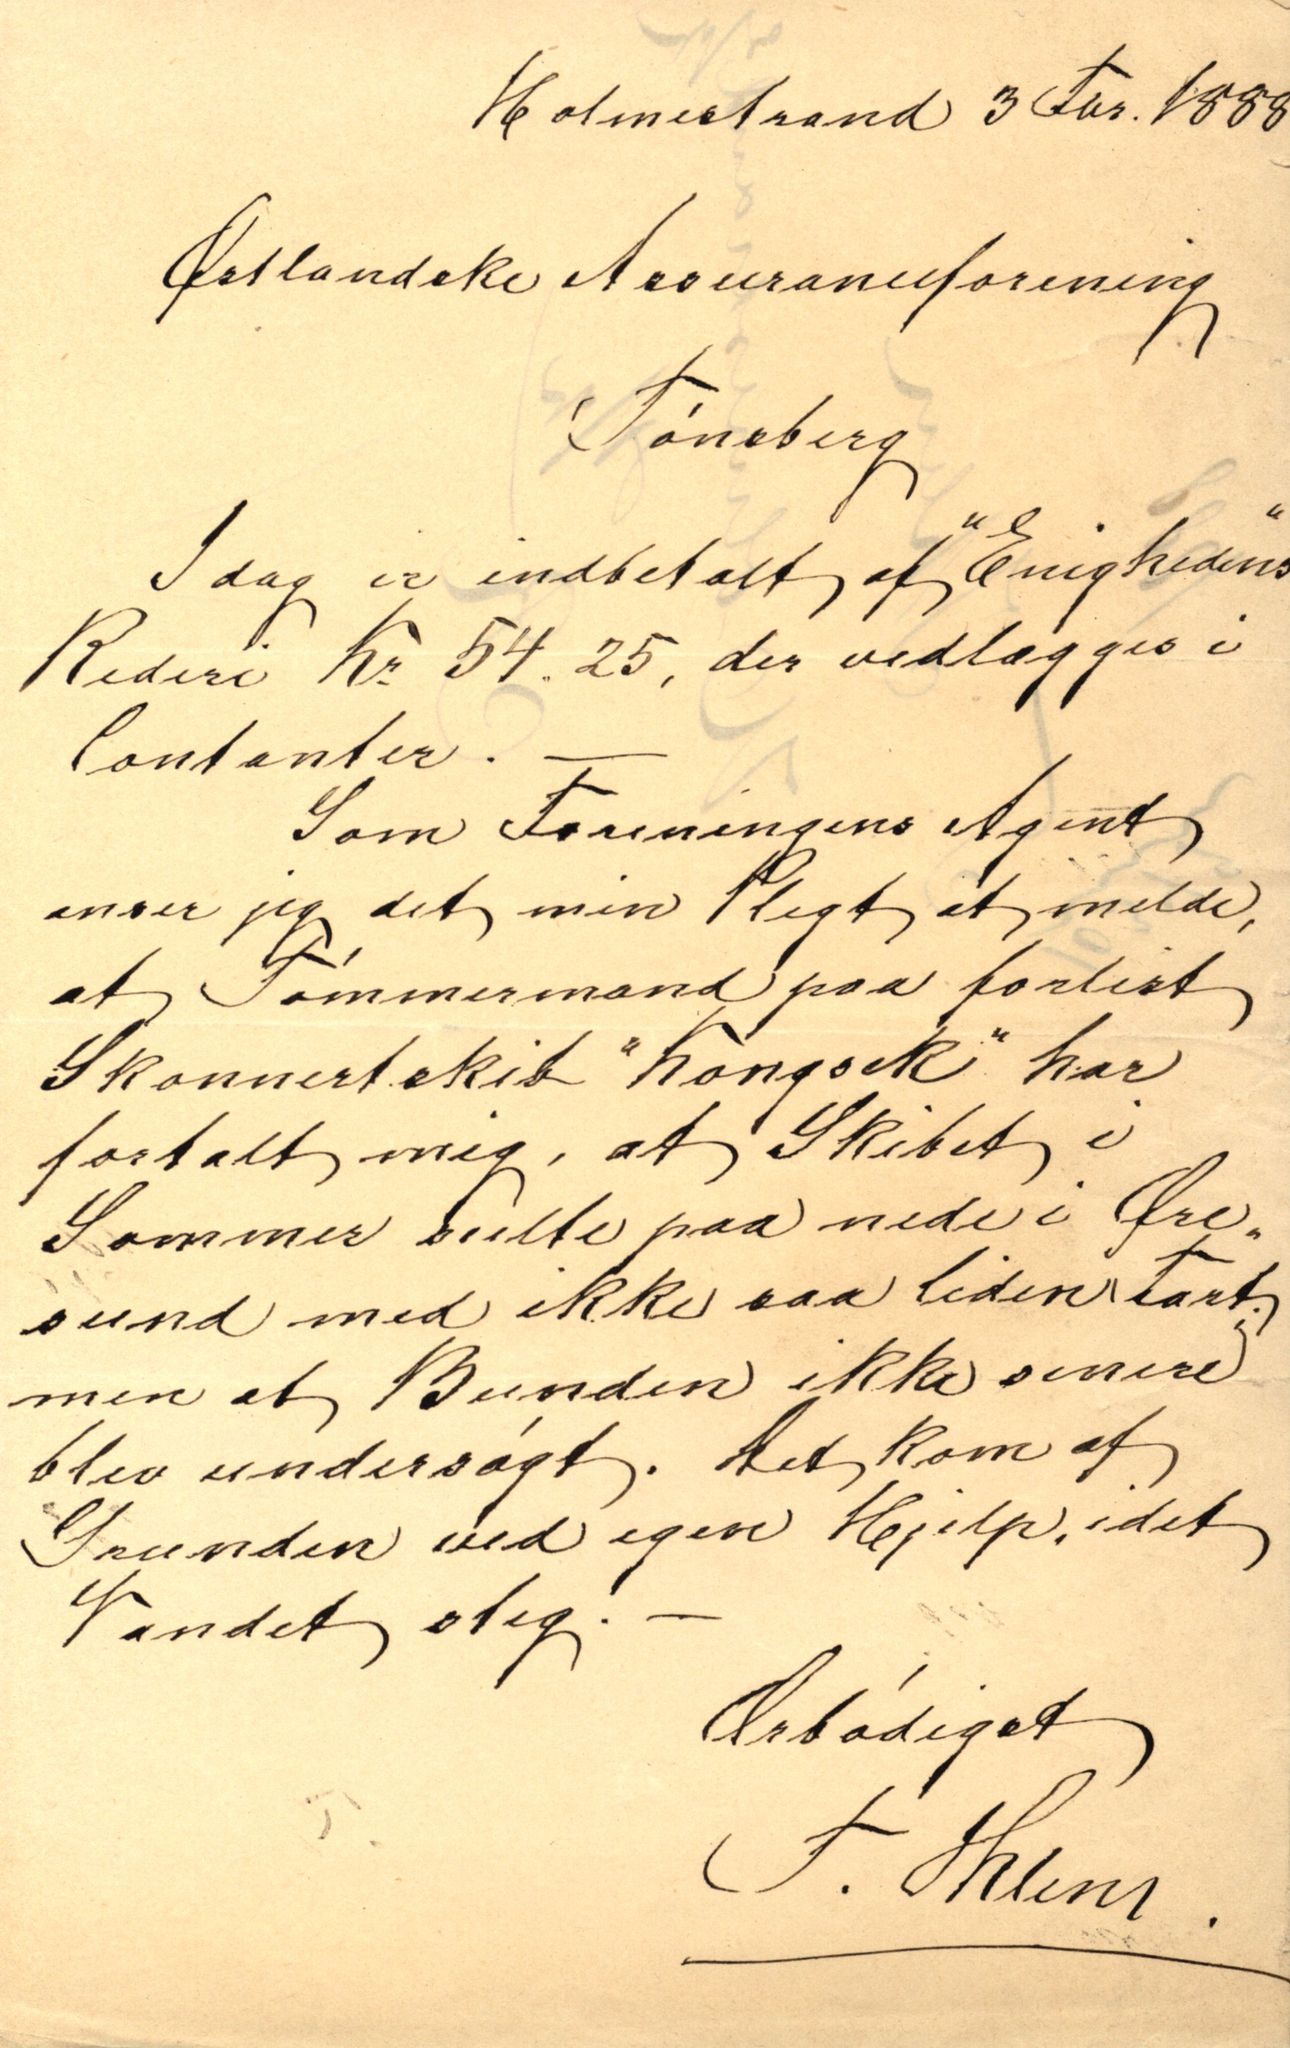 Holmestrand 3 Fbr. 1888
Østlandske Assuranceforening
Tónsberg
I dag er indbetalt af "Enighedens"
Rederi Kr 54.25, der vedlægges i
Contanter. —
Som Foreningens Agent
anser jeg det min Plegt at melde,
at Tómmermand paa forlist
Skonnertskib "Kongsek" har
fortalt mig, at Skibet i
Sommer stilte paa nede i Øre„
sund med ikke saa liden Fart.
men at Bunden ikke senere
blev undersógt. Det kom af
Grunden ved egen Hjelp, idet
Vandet steg. —
Ørbódigst
F. Ihlens.